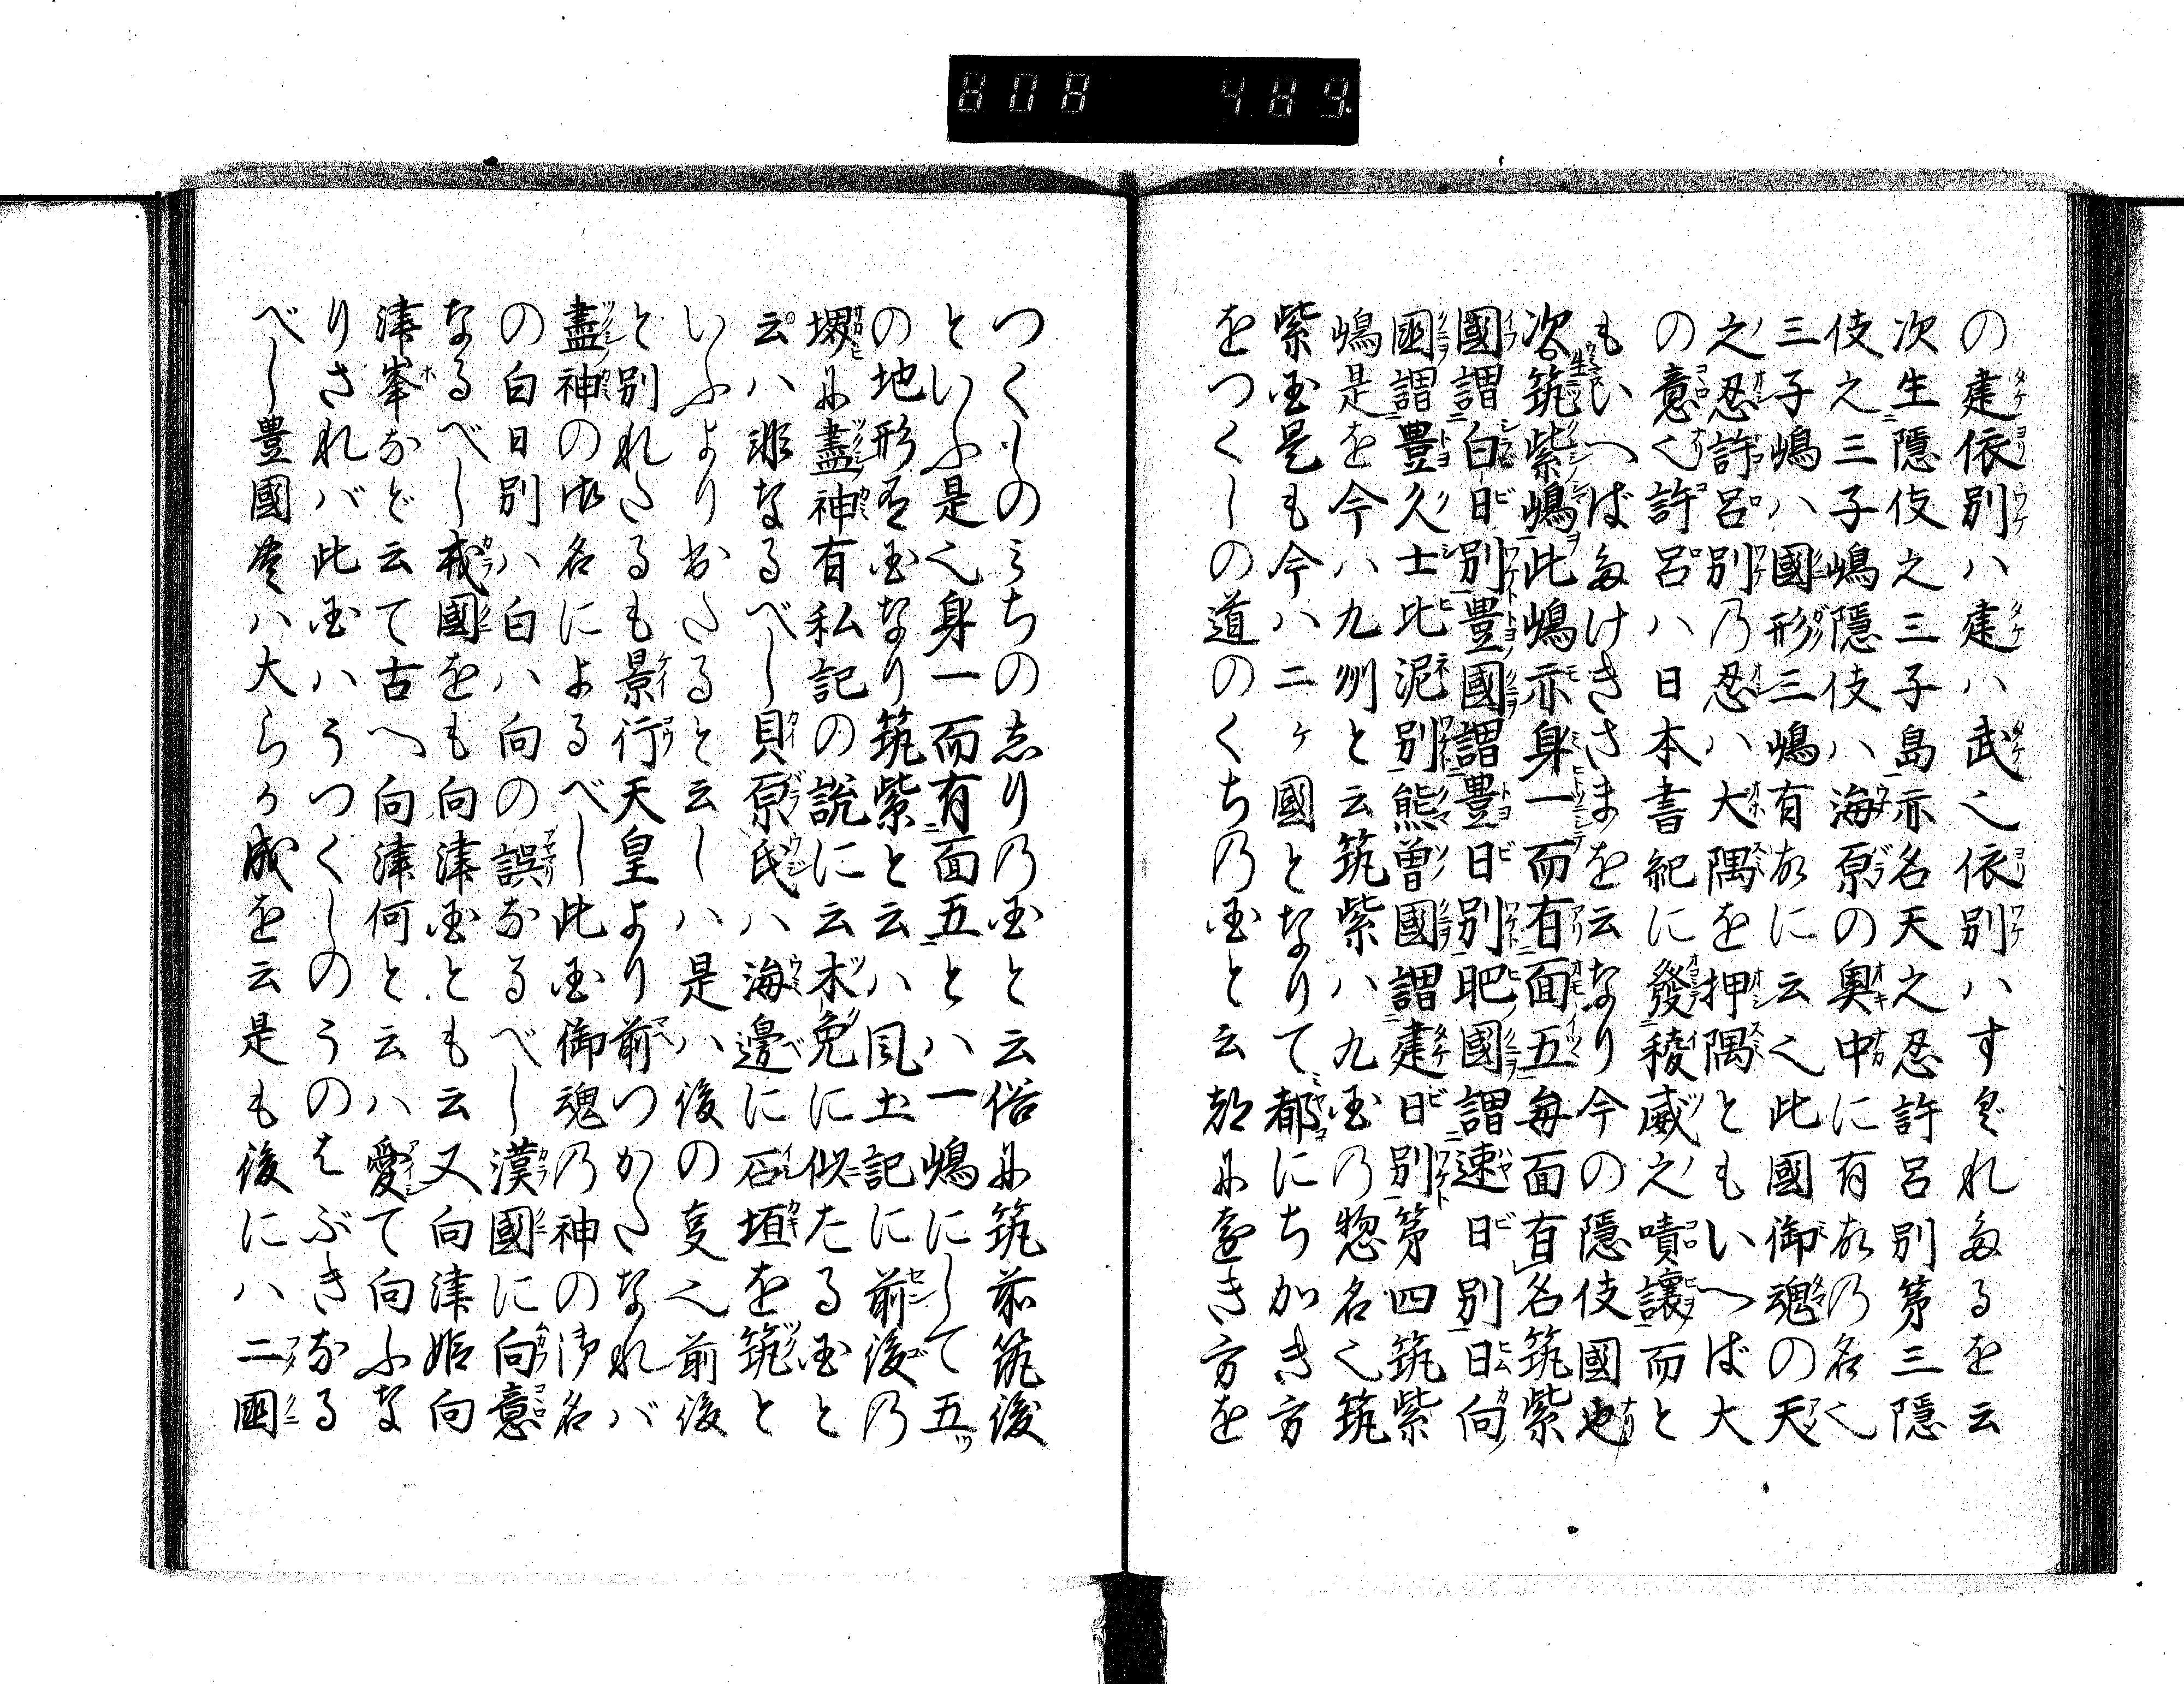 808 489
の建依別ハ建ハ武也依別ハすぐれたるを云
次生隠伎之三子島亦名天之忍許呂別第三隠
伎之三子嶋隠伎ハ海原の奥中に有故乃名也
三子嶋ハ國形三嶋有故に云也此國御魂の天
之忍許呂別乃忍ハ大隅を押隅ともいへば大
の意也許呂ハ日本書紀に發稜威之嘖讓而と
もいへばたけきさまを云なり今の隠伎國也
次生筑紫嶋此嶋亦身一而有面五毎面有名筑紫
國謂白日別豊國謂豊日別肥國謂速日別日向
國謂豊久士比泥別熊曽國謂建日別第四筑紫
嶋是を今ハ九州と云筑紫ハ九国乃惣名也筑
紫国是も今ハ二ヶ國となりて都にちかき方
をつくしの道のくち乃国と云都に遠き方を
つくしのみちの志り乃国と云俗に筑前筑後
といふ是也身一而有面五とハ一嶋にして五ッ
の地形有国なり筑紫と云ハ風土記に前後乃
堺に盡神有私記の説に云木兔に似たる国と
云ハ非なるべし貝原氏ハ海邊に石垣を筑と
いふよりおこると云しハ是ハ後の事也前後
と別れたるも景行天皇より前つかたなれバ
盡神の御名によるべし此国御魂乃神の御名
の白日別ハ白ハ向の誤なるべし漢國に向意
なるべし我國をも向津国とも云又向津姫向
津峯など云て古へ向津何と云ハ愛て向ふな
りされバ此国ハうつくしのうのはぶきなる
べし豊國豊ハ大らか成を云是も後にハ二國